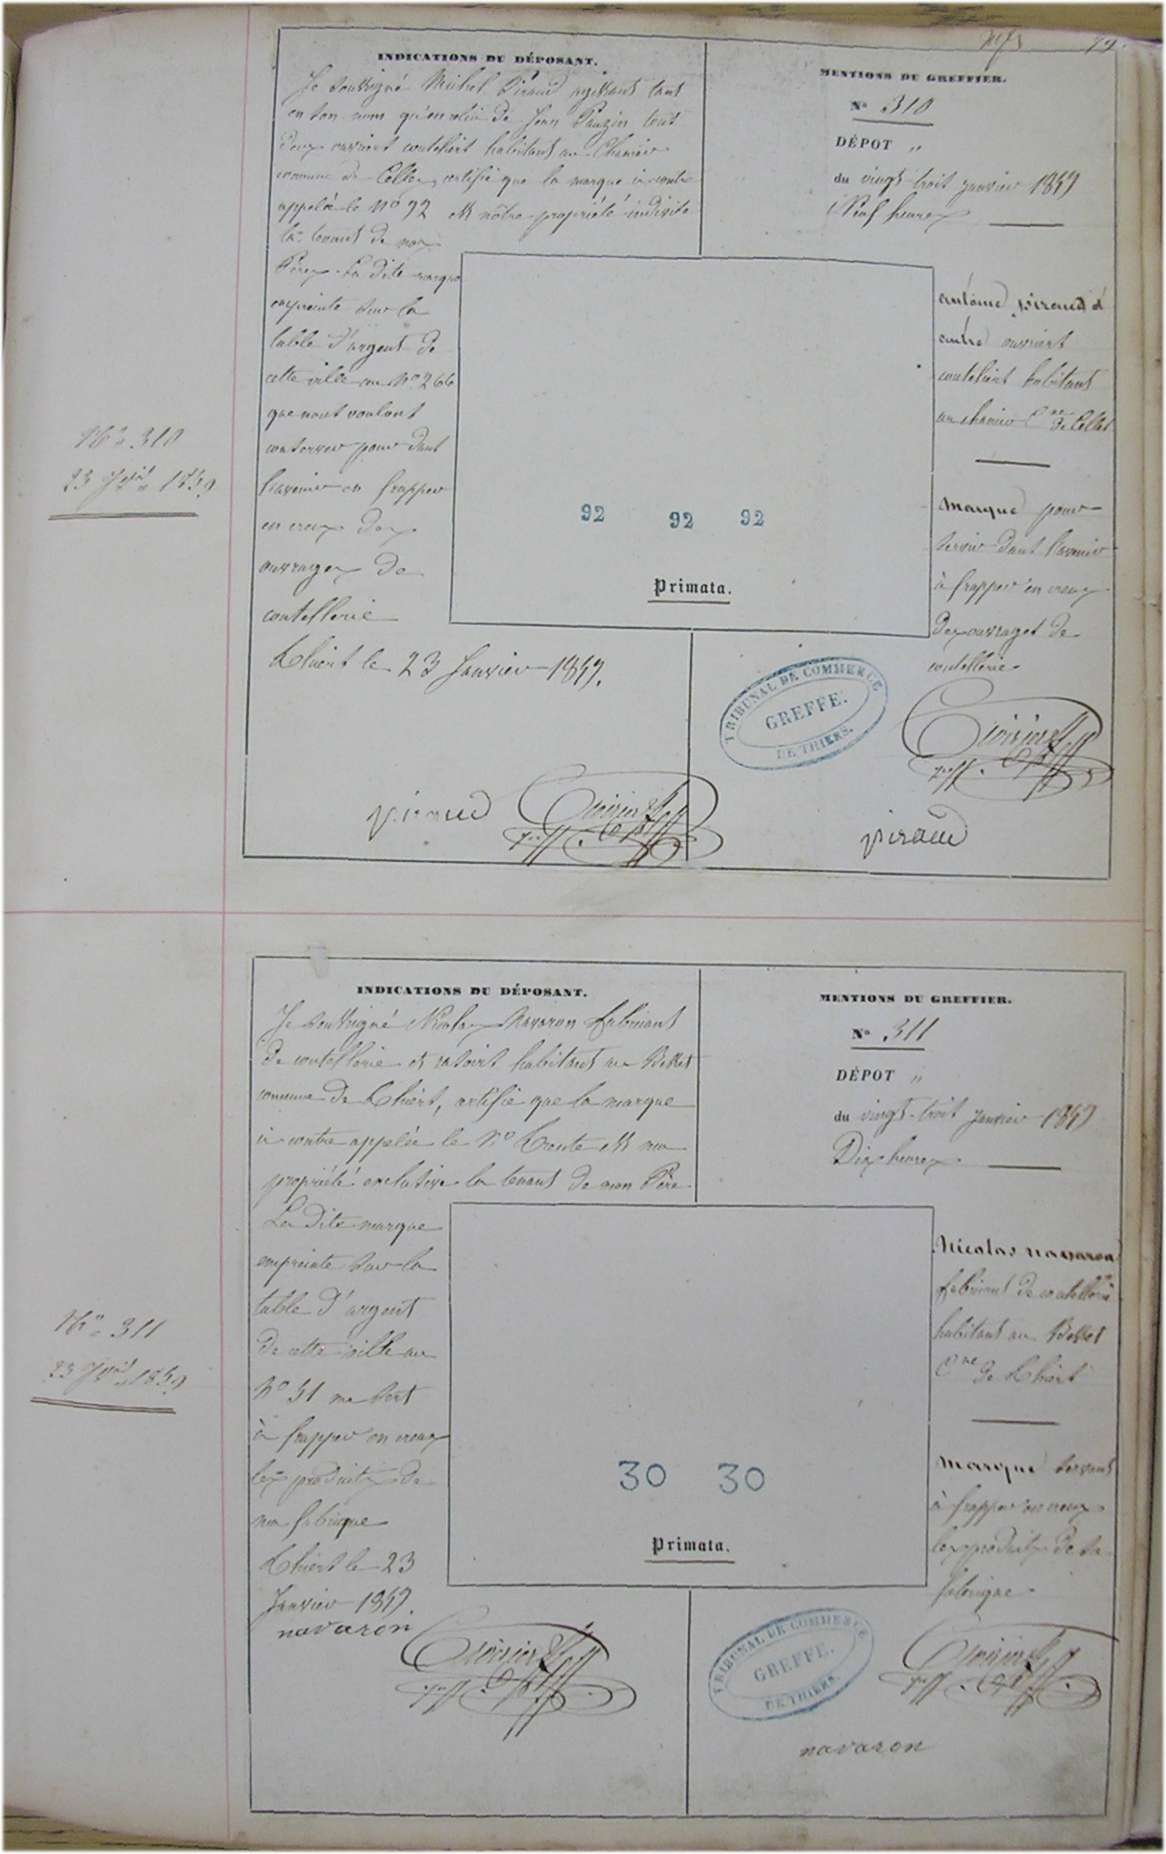 79.
INDICATIONS DU DÉPOSANT.
Je soussigné Michel Piraud agissant tant
en son nom qu'en celui de Jean Pauzin tous
deux ouvriers couteliers habitant au Chamier
commune de Celles, certifie que la marque ci contre
appelée le No 92 est nôtre propriété indivise
la tenant de nos
Pères. La dite marque
empreinte sur la
table d'argent de
cette ville au No 266
que nous voulons
conserver pour dans
l'avenir en frapper
en creux des
ouvrages de
coutellerie
Thiers le 23 Janvier 1859.
piraud
MENTIONS DU GREFFIER.
No 310
DÉPOT "
du vingt-trois janvier 1859
Neuf heures
ouvriers
couteliers habitant
au chamier Cne de Celles
Marque pour
servir dans l'avenir
à frapper en creux
des ouvrages de
coutellerie
92 92 92
Primata.
TRIBUNAL DE COMMERCE
GREFFE.
DE THIERS.
piraud
No 310
23 Jer 1859
INDICATIONS DU DÉPOSANT.
Je soussigné Nicolas Navaron fabricant
de coutellerie et rasoirs habitant au Besset
commune de Thiers, certifie que la marque
ci contre appelée le No Trente est ma
propriété exclusive la tenant de mon Père
La dite marque
empreinte sur la
table d'argent
de cette ville au
No 51 me sert
à frapper en creux
les produits de
ma fabrique
Thiers le 23
Janvier 1859.
navaron
MENTIONS DU GREFFIER.
No 311
DÉPOT "
du vingt-trois janvier 1859
Dix heures
Nicolas navaron
fabricant de coutellerie
habitant au Besset
Cne de Thiers
Marque servant
à frapper en creux
les produits de sa
fabrique
30 30
Primata.
TRIBUNAL DE COMMERCE
GREFFE.
DE THIERS.
navaron
No 311
23 Jer 1859